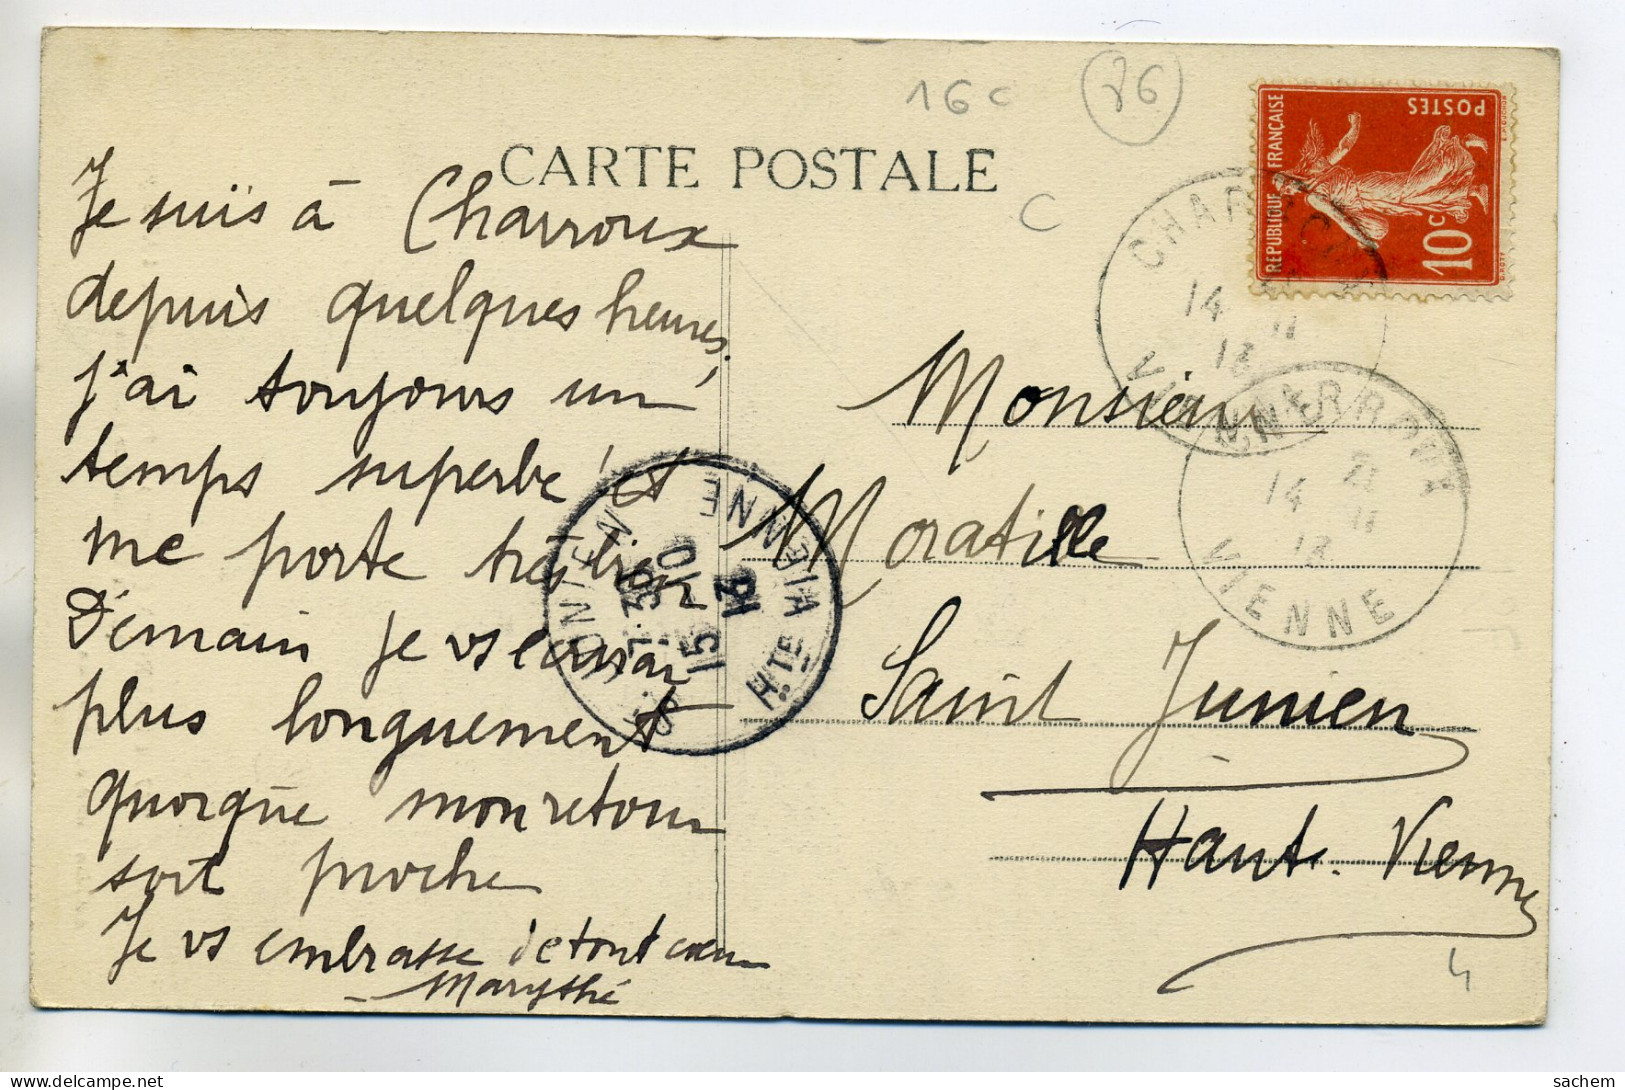 16 c
86
CARTE POSTALE
C
REPUBLIQUE FRANÇAISE
POSTES
10c
Je suis à Charroux
depuis quelques heures.
J'ai toujours un
temps superbe et
me porte très bien
Demain je vs écrirai
plus longuement
quoique mon retour
soit proche
Je vs embrasse de tout cœur
Marysthé
Monsieur
Moratille
Saint Junien
Haute-Vienne
CHARROUX
14
11
13
VIENNE
14 21
11
13
VIENNE
JUNIEN
7·30
15 10
13
HTE VIENNE
4
sachem